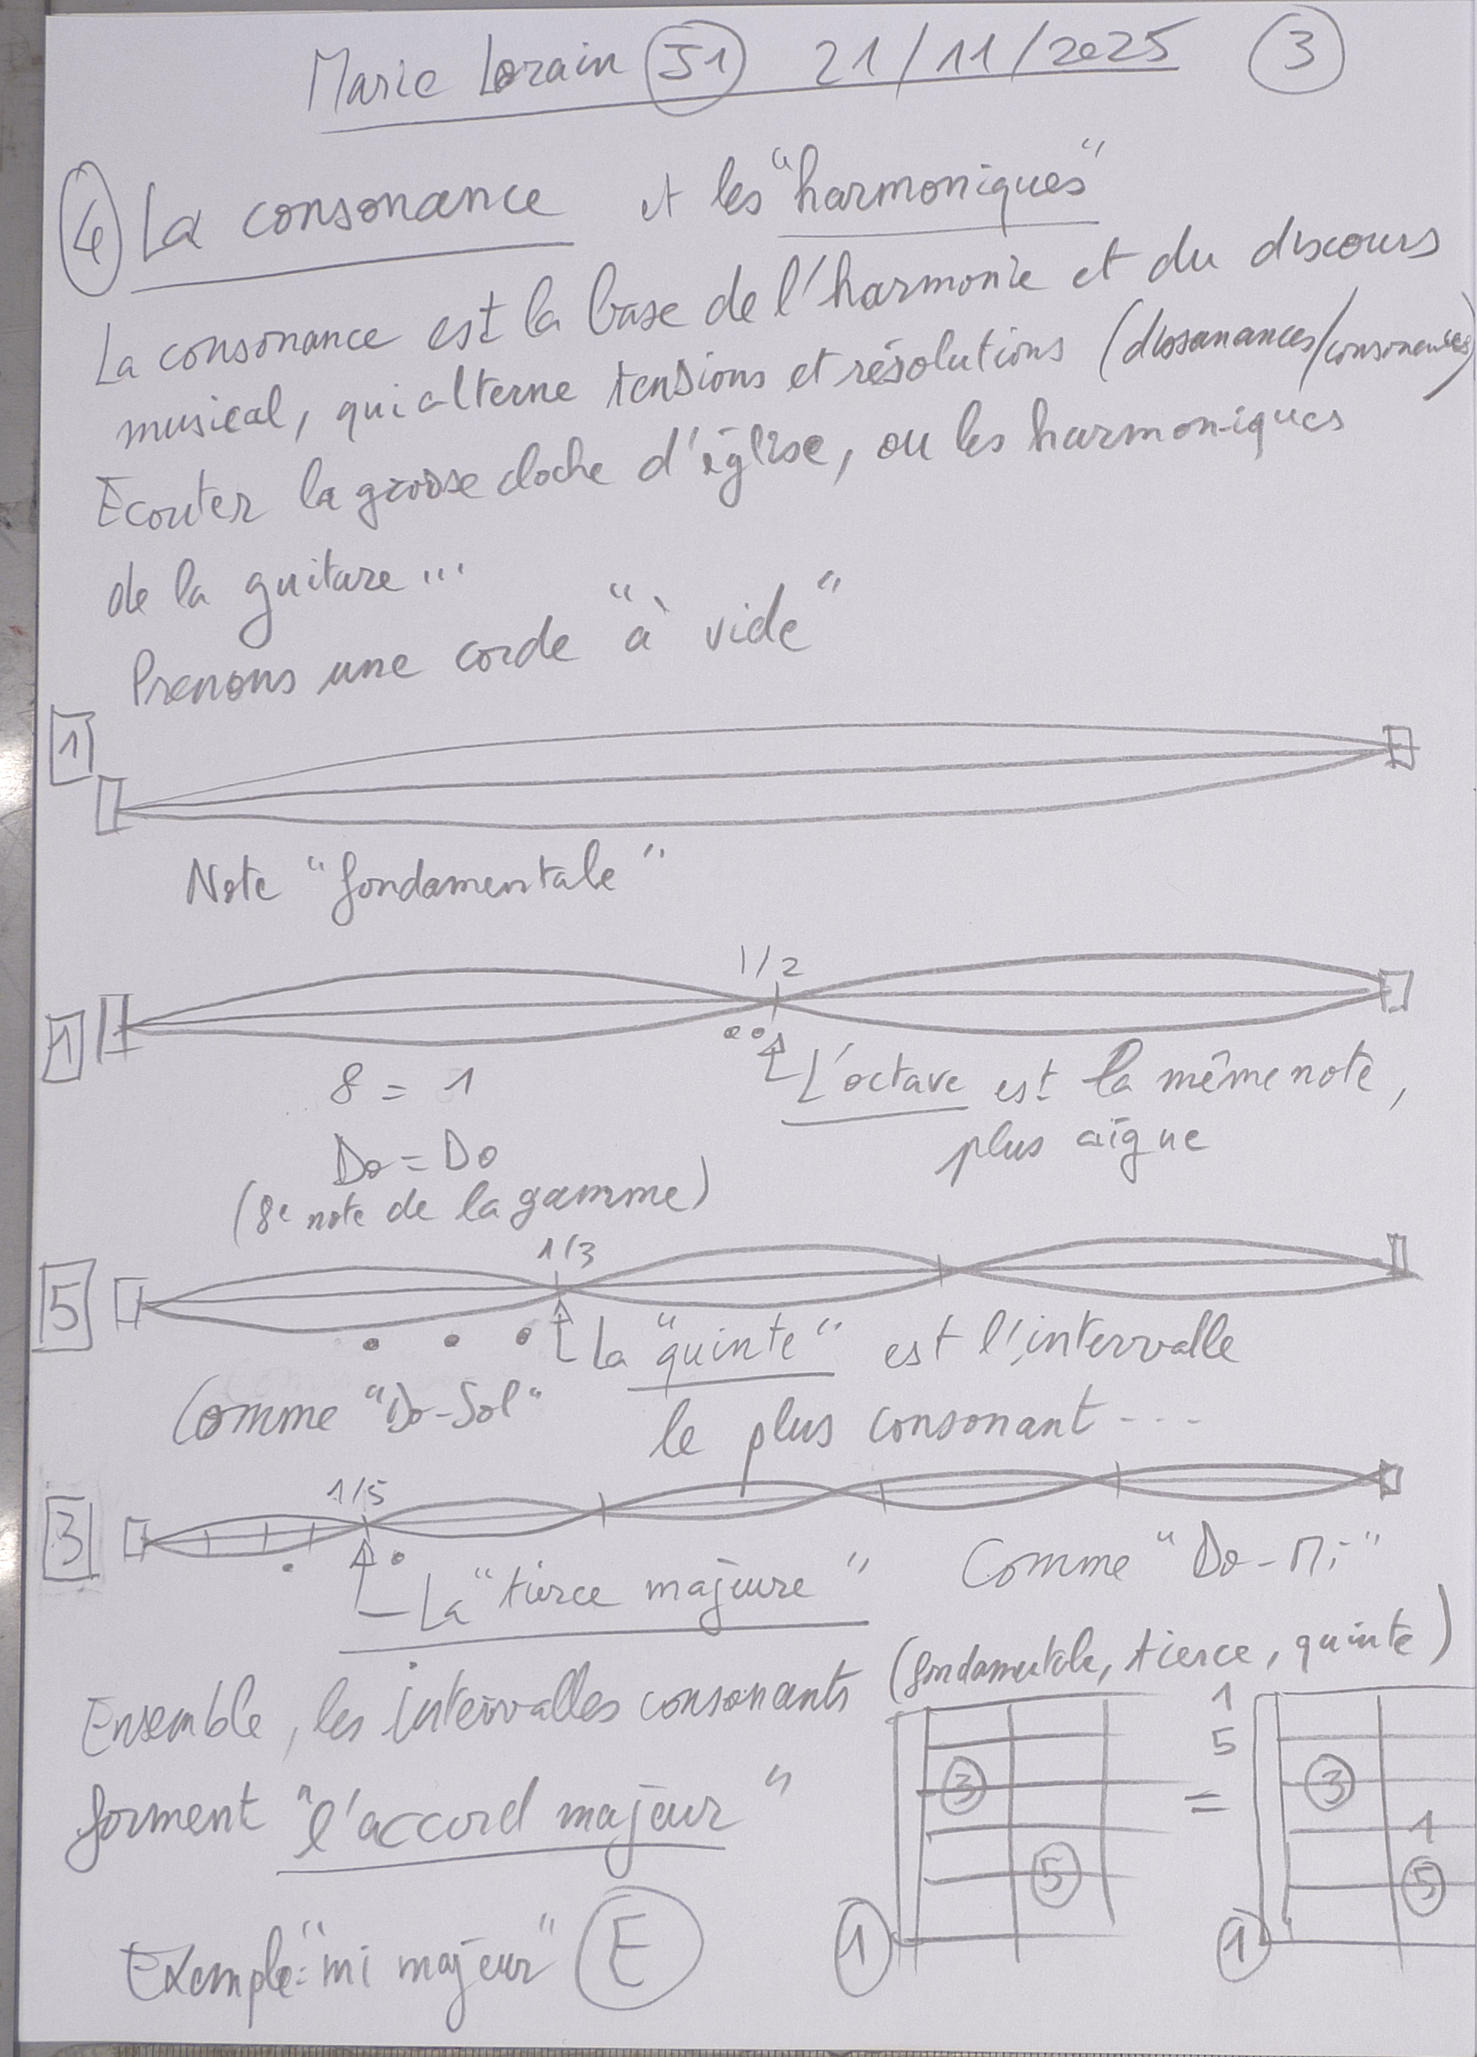 Marie Lorain J1 21/11/2025 3
4 La consonance et les "harmoniques"
La consonance est la base de l'harmonie et du discours
musical, qui alterne tensions et résolutions (dissonances/consonances)
Ecouter la grosse cloche d'église, ou les harmoniques
de la guitare ...
Prenons une corde "à vide"
1
Note "fondamentale"
1/2
1
8 = 1
L'octave est la même note,
plus aigue
Do = Do
(8e note de la gamme)
1/3
5
La "quinte" est l'intervalle
le plus consonant ...
Comme "Do-Sol"
1/5
3
La "tierce majeure"
Comme "Do-Mi"
Ensemble, les intervalles consonants (fondamentale, tierce, quinte)
forment "l'accord majeur"
Exemple: "mi majeur" E
3
5
1
=
1
5
3
1
5
1